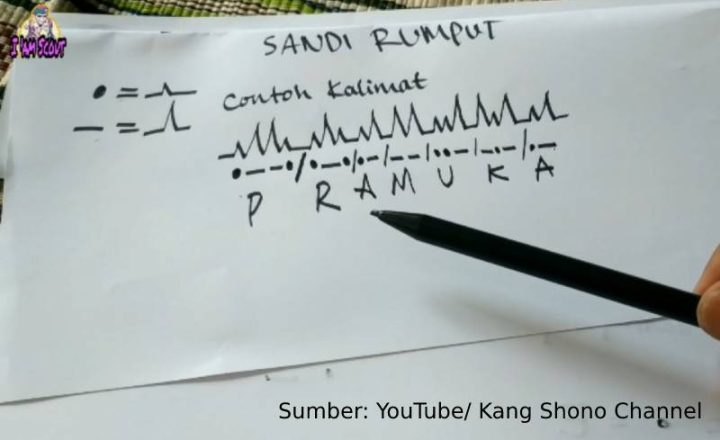 I AM SCOUT
SANDI RUMPUT
• =
— =
Contoh Kalimat
•——•/•—•/•—/——/••—/—•—/•—
P R A M U K A
Sumber: YouTube/ Kang Shono Channel